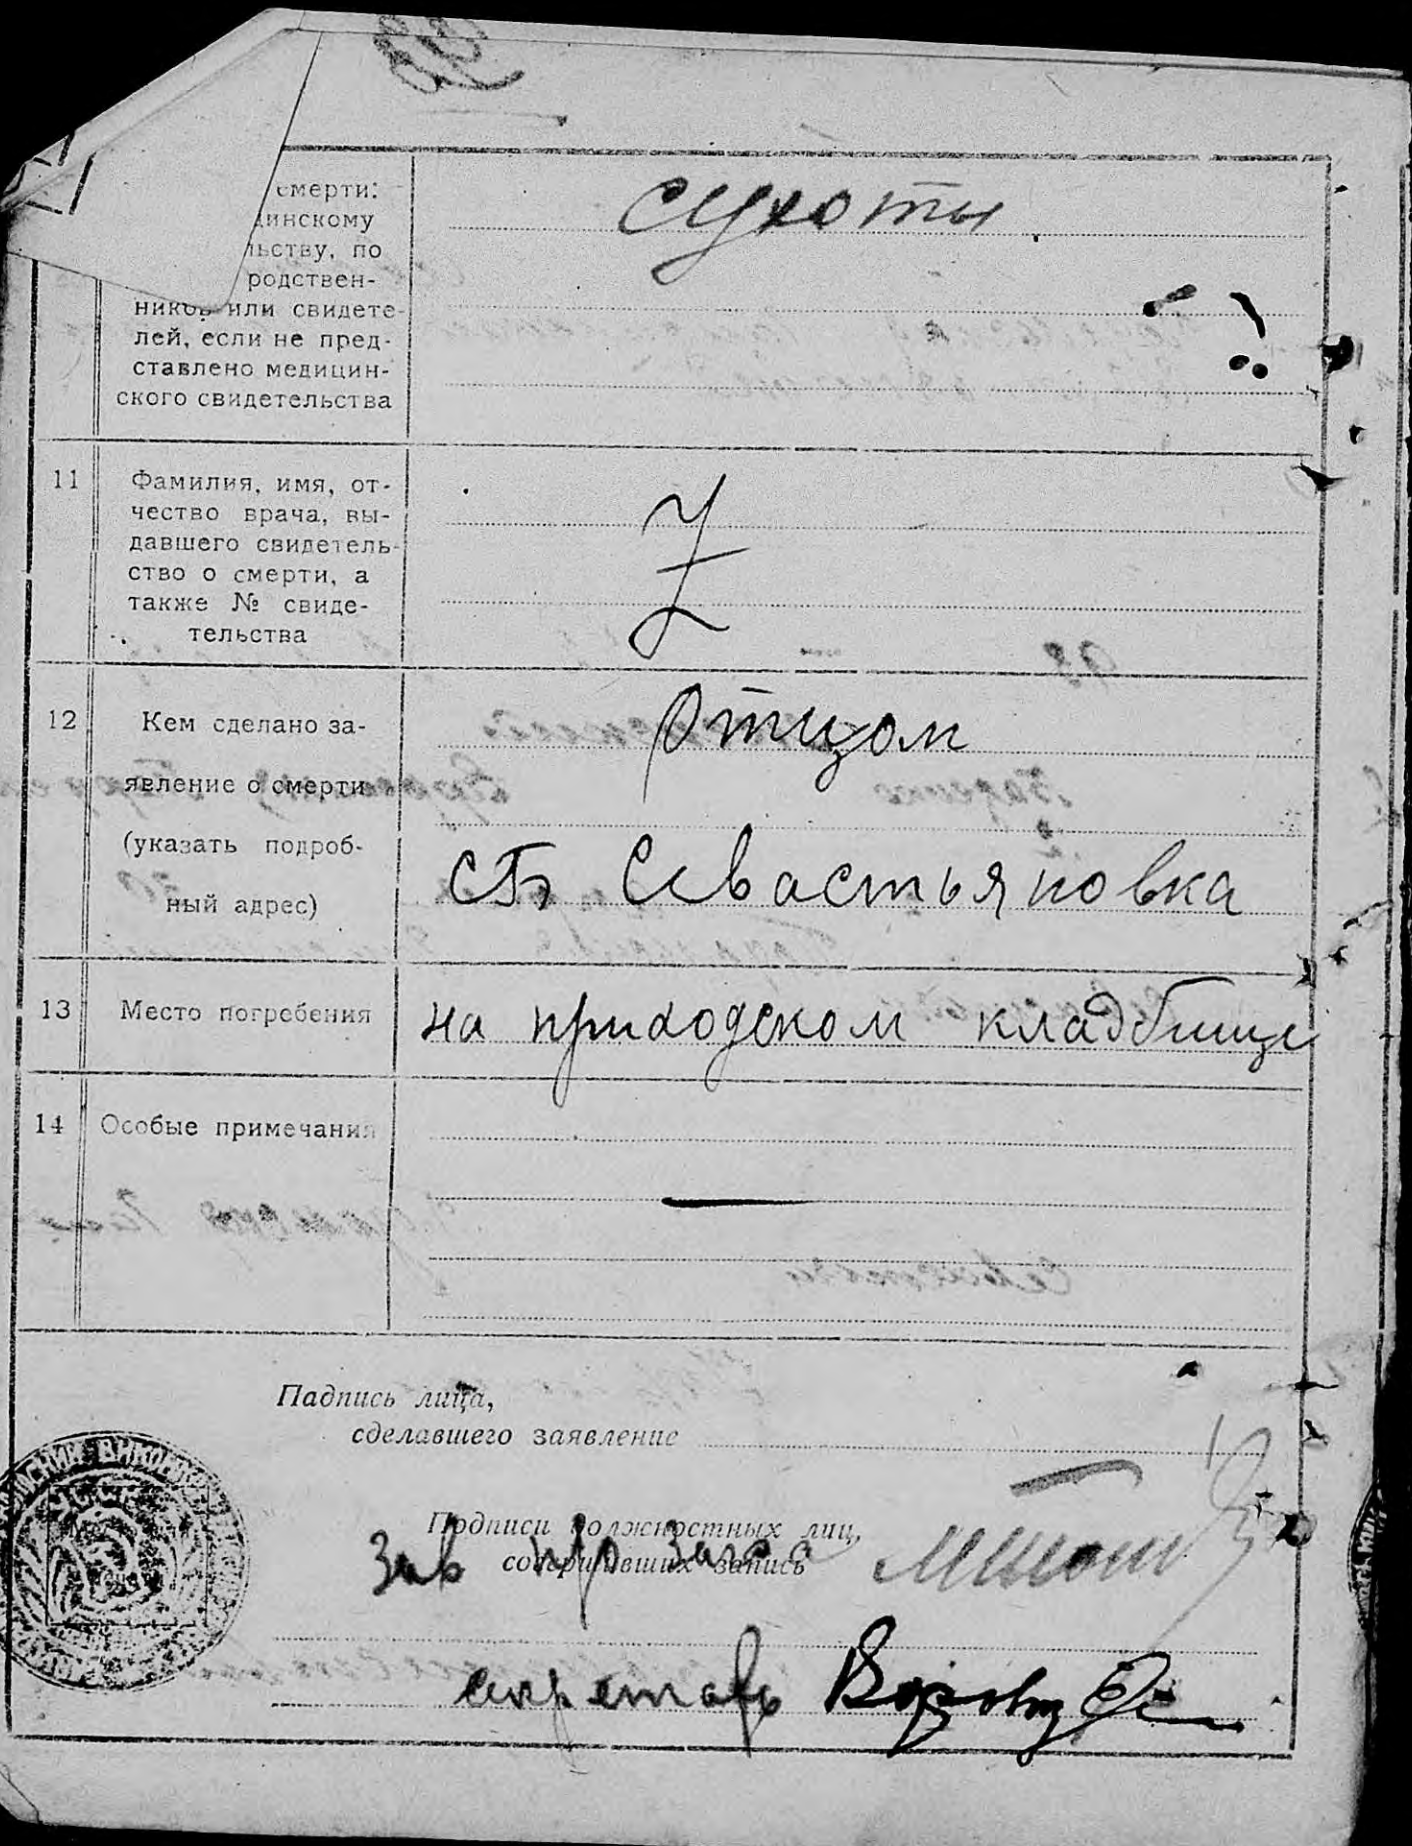 смерти:
динскому
льству, по
родствен-
ников или свидете-
лей, если не пред-
ставлено медицин-
ского свидетельства
сухоты
11
Фамилия, имя, от-
чество врача, вы-
давшего свидетель-
ство о смерти, а
также № свиде-
тельства
Z
12
Кем сделано за-
явление о смерти
(указать подроб-
ный адрес)
Отцом
сБ Севастьяновка
13
Место погребения
на приходском кладбище
14
Особые примечания
—
Падпись лица,
сделавшего заявление
Подписи должностных лиц,
совершивших запись
Зав п/о Загса
секретарь